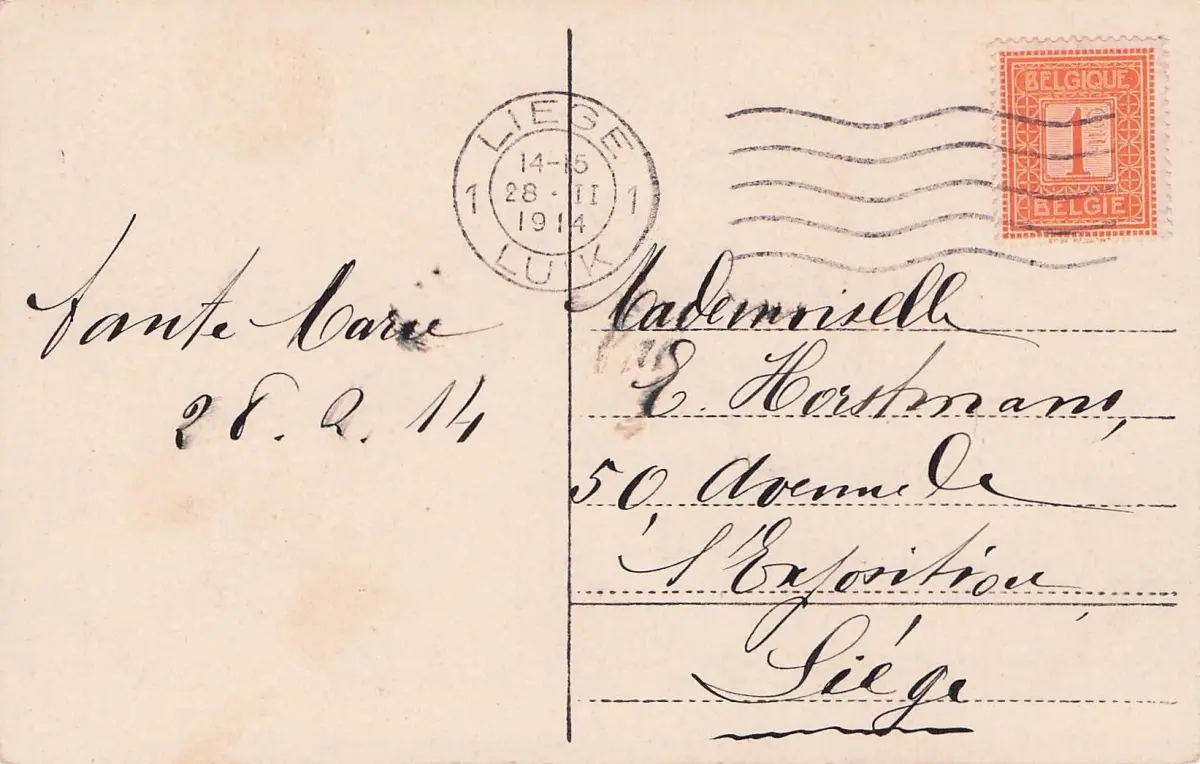 LIEGE
1 14-15 1
28 - II
1914
LUIK
BELGIQUE
1
BELGIE
Tante Marie
28. 2. 14
Mademoiselle
E. Horstmans,
50, Avenue de
l'Exposition,
Liége